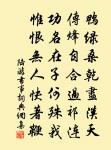 鴨綠桑乾盡漢天
傳烽自合過祁連
功名在子何殊我
惟恨無人快著鞭
陸游書事詞典網集